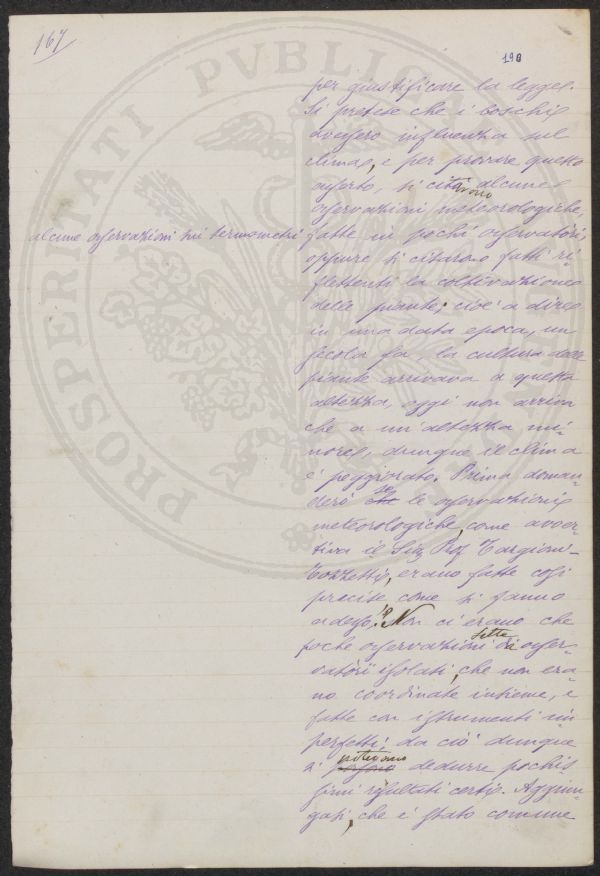 167
190
PROSPERITATI PVBLICAE
per giustificare la legge.
Si pretese che i boschi
avessero influenza sul
clima, e per provare questo
asserto, si citavano alcune
osservazioni meteorologiche,
alcune osservazioni sui termometri
fatte in pochi osservatorî,
oppure si citarono fatti ri-
flettenti la coltivazione
delle piante; cioè a dire
in una data epoca, un
secolo fa, la cultura delle
piante arrivava a questa
altezza, oggi non arriva
che a un'altezza mi-
nore, dunque il clima
è peggiorato. Prima doman-
derò se le osservazioni
meteorologiche, come avver-
tiva il Sig. Prof. Targioni-
Tozzetti, erano fatte così
precise come si fanno
adesso? Non ci erano che
poche osservazioni di osser-
vatorî isolati, che non era-
no coordinate insieme, e
fatte con istrumenti im
perfetti, da ciò dunque
si dedurre pochis
simi risultati certi. Aggiun-
gasi, che è stato comune